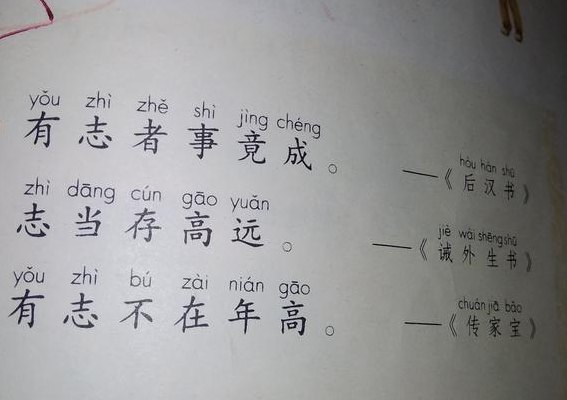 yǒu zhì zhě shì jìng chéng
有志者事竟成。 ——《后汉书》
hòu hàn shū
zhì dāng cún gāo yuǎn
志当存高远。 ——《诫外生书》
jiè wài shēng shū
yǒu zhì bú zài nián gāo
有志不在年高。 ——《传家宝》
chuán jiā bǎo